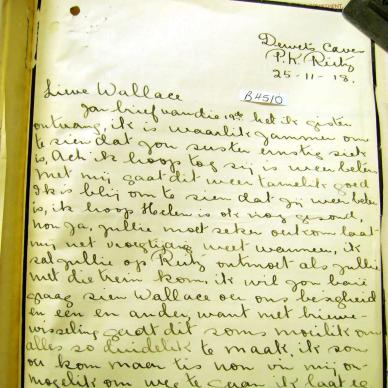 Dewets Cave
P.K. Reitz
25-11-18.
Lieve Wallace
B4510
Jou brief van die 19de het ik gister
ontvang, ik is waarlik jammer om
te sien dat jou suster ernstig siek
is, Ach ik hoop tog sij is weer beter
Met mij gaat dit weer tamelik goed
Ik is blij om te sien dat jij weer beter
is, ik hoop Helen is ok nog gesond,
nou ja, jullie moet seker outcom laat
mij net vroegtijdig weet wanneer, ik
sal jullie op Reitz ontmoet als jullie
met die trein kom, ik wil jou baie
graag sien Wallace oor ons besigheid
en een en ander, want met briewe
wisseling gaat dit soms moeilik om
alles so duidelik te maak, ik sou
ou kom maar tis non vir mij on-
mogelik om weg te gaan, ik